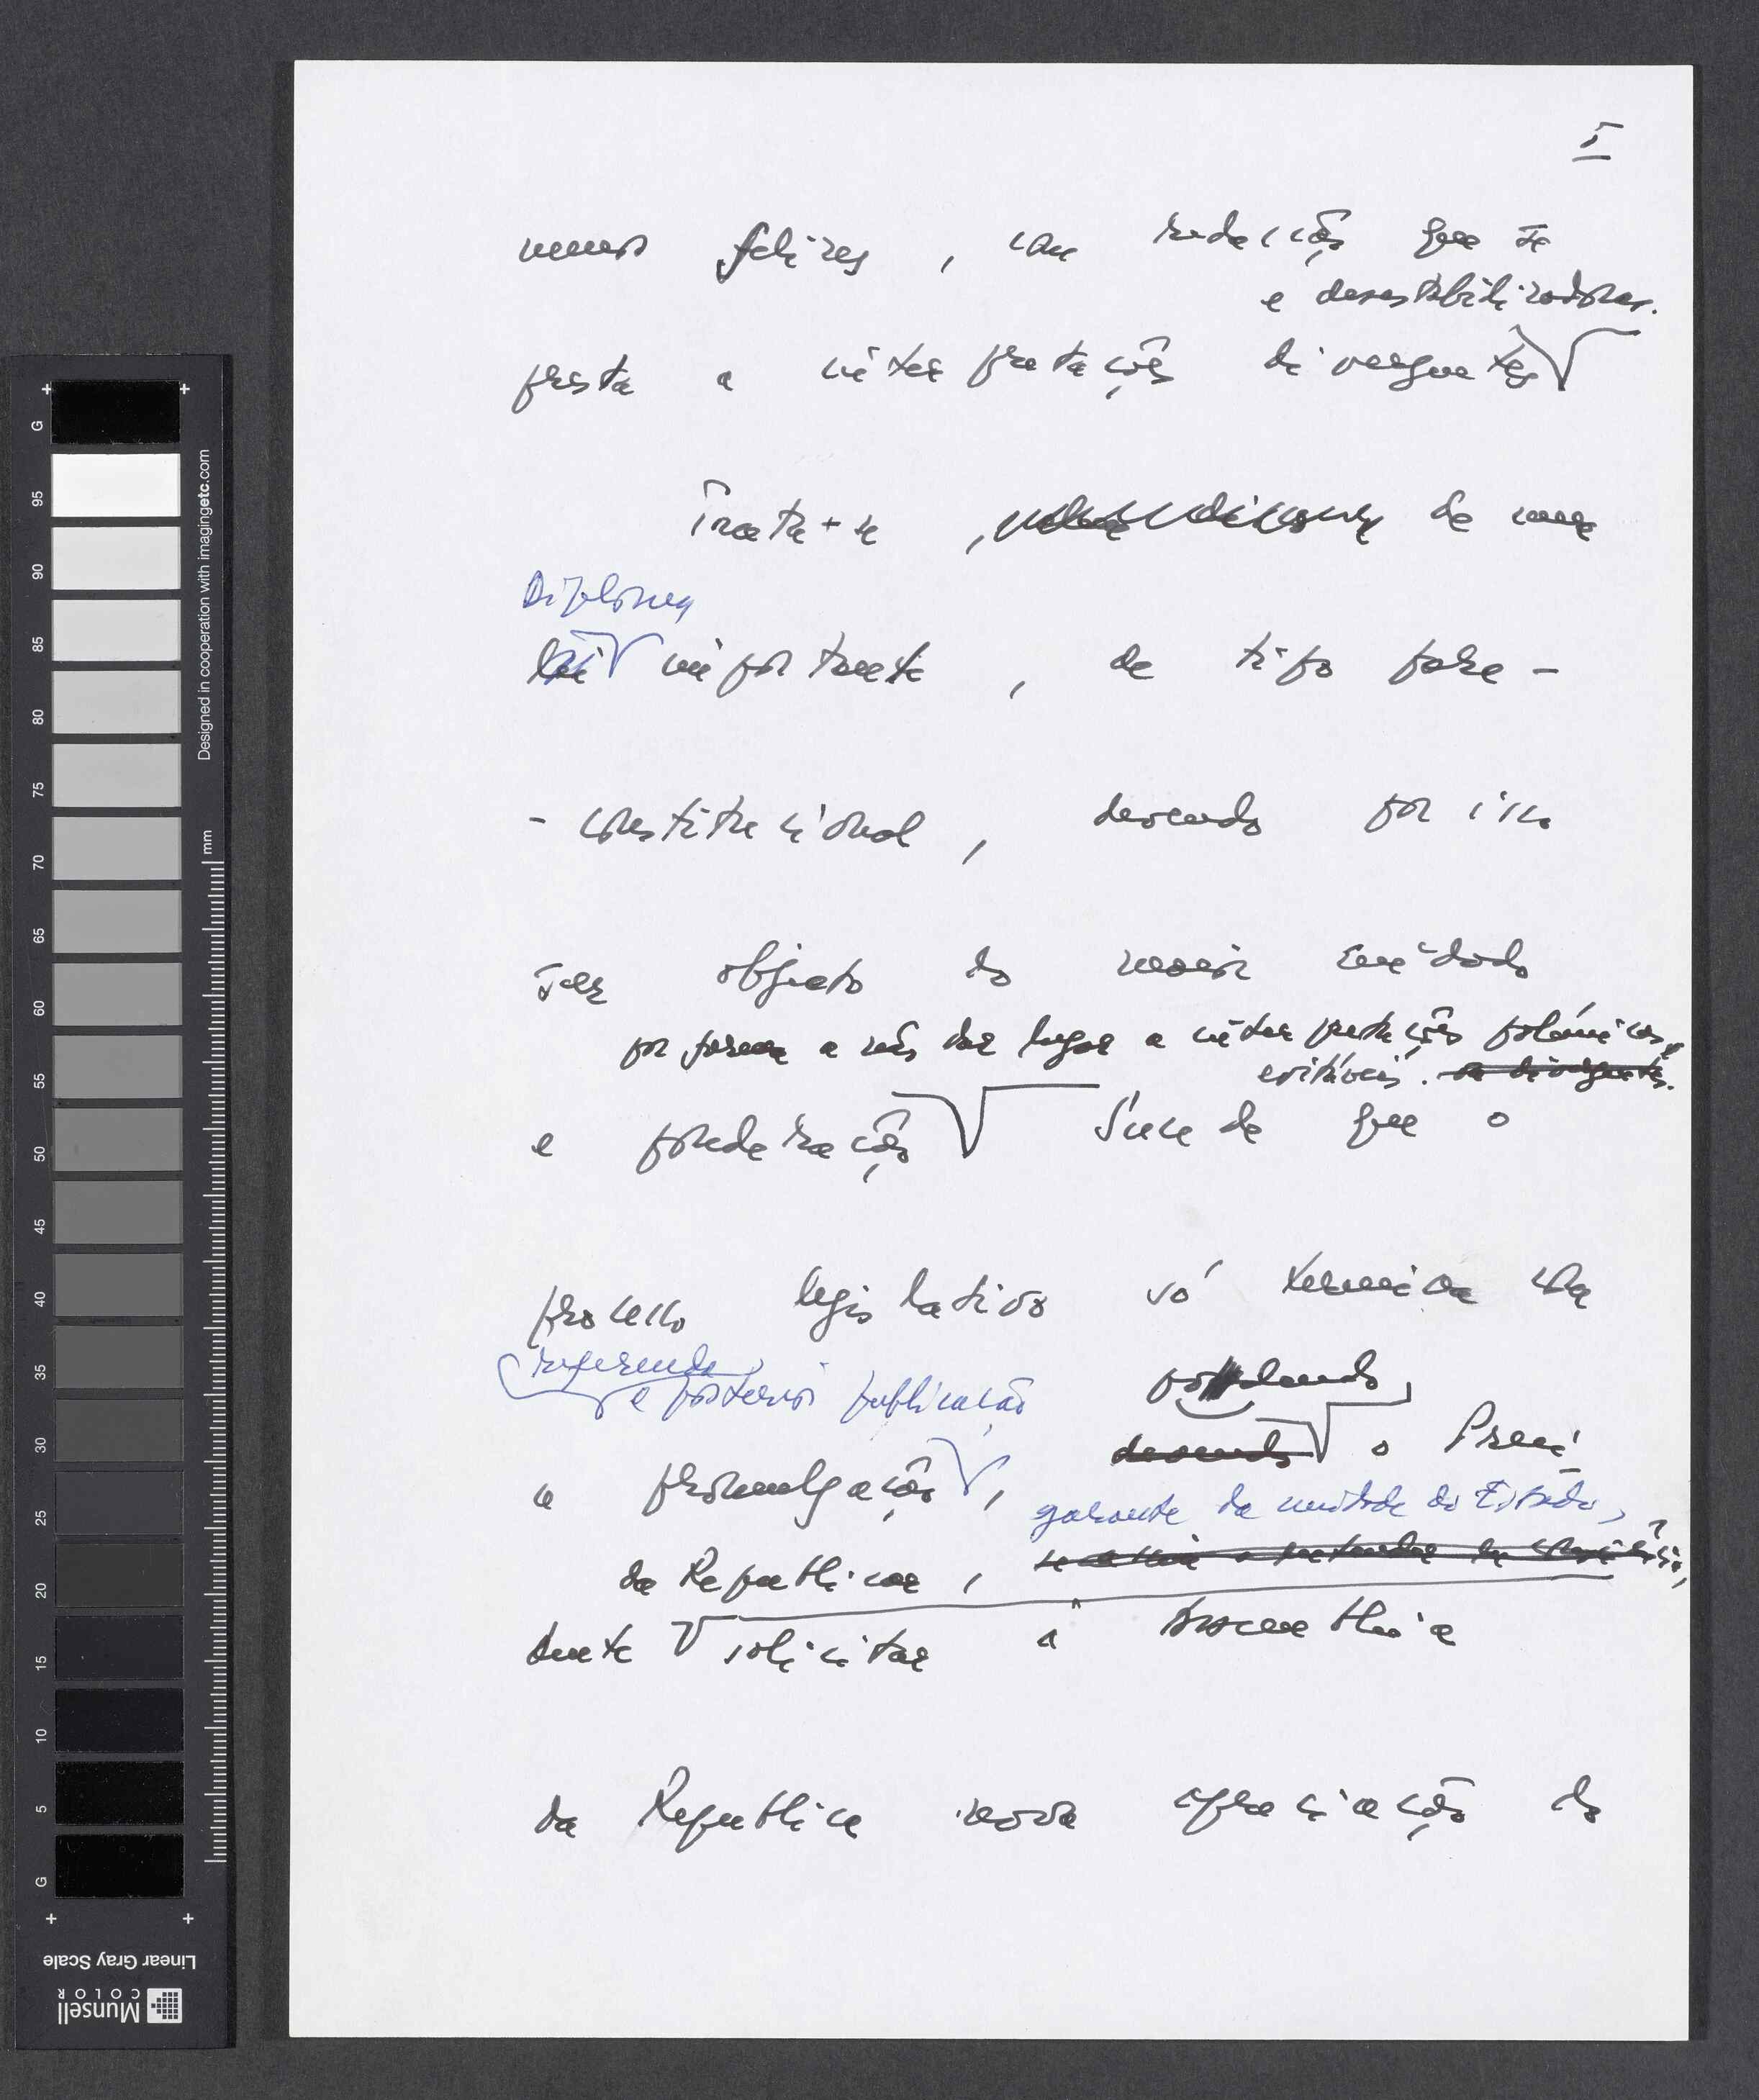 5
menos felizes, com redacção que se
e desestabilizadoras.
presta a interpretações divergentes
Trata-se, de uma
Diploma
lei importante, de tipo para-
- constitucional, devendo por isso
ser objecto do maior cuidado
por forma a não dar lugar a interpretações polémicas,
evitáveis. ou divergentes.
e ponderação Sucede que o
processo legislativo só termina com
referenda
e posterior publicação
podendo,
a promulgação, devendo o Presi-
garante da unidade do Estado,
da República,
dente solicitar à Assembleia
da República nova apreciação do
Designed in cooperation with imagingetc.com
mm
G 95 90 85 80 75 70 65 60 55 50 45 40 35 30 25 20 15 10 5 G
Linear Gray Scale
Munsell
COLOR